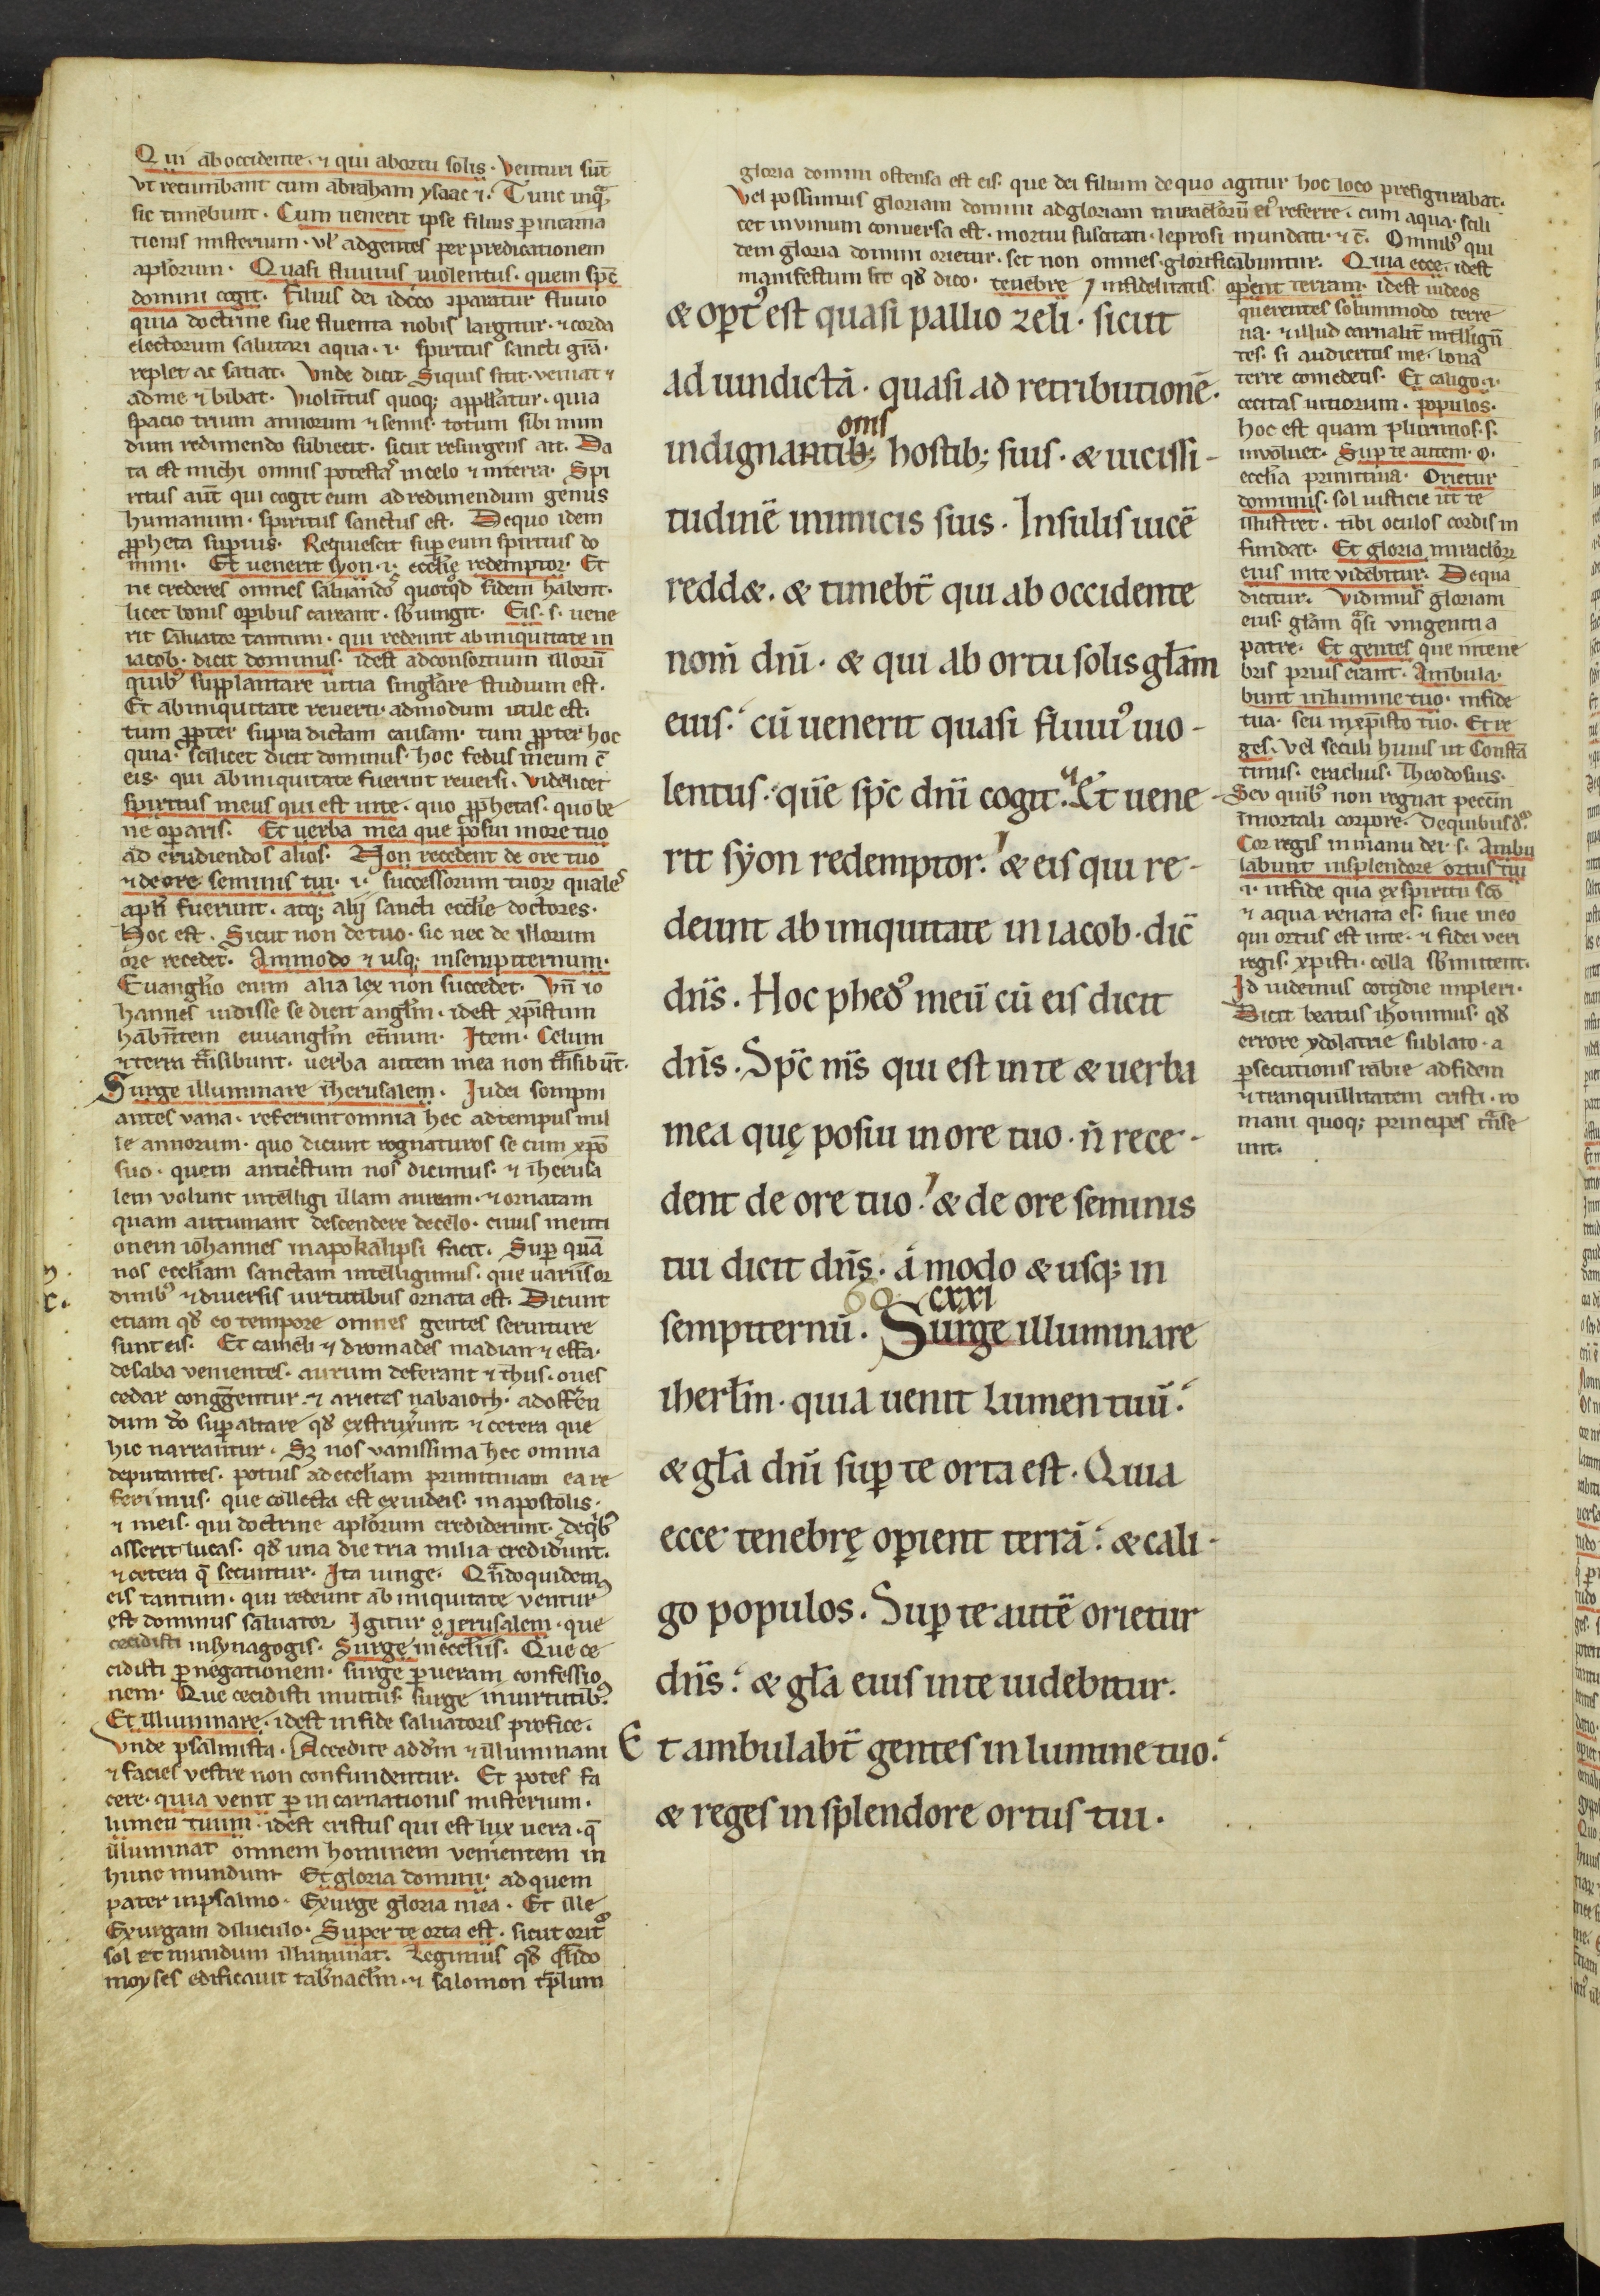 Qui ab occidente. ⁊ qui ab ortu solis. Venturi sūt
vt recumbant cum abraham ysaac ⁊. Tunc inq̄
sic timebunt. Cum uenerit ipse filius ꝑ incarna
tionis misterium. ul' ad gentes per predicationem
apl'orum. Quasi fluuius uiolentus. quem sp̄c
domini cogit. Filius dei idcc̄o ꝯparatur fluuio
quia doctrine sue fluenta nobis largitur. ⁊ corda
electorum salutari aqua .i. spiritus sancti gr̄a.
replet ac satiat. Vnde dicit. Siquis sitit. veniat
ad me ⁊ bibat. Violent̄us quoq; appll'atur. quia
spacio trium annorum ⁊ semis. totum sibi mun
dum redimendo subiecit. sicut resurgens ait. Da
ta est michi omnis potestas in celo ⁊ in terra. Spi
ritus aūt qui cogit eum ad redimendum genus
humanum. spiritus sanctus est. De quo idem
ꝓpheta suꝑius. Requiescit suꝑ eum spiritus do
mini. Et uenerit syon .i. eccl'ie redemptor. Et
ne crederes omnes saluandos quotq̄d fidem habent.
licet bonis oꝑibus careant. sb'iungit. Eis. s. uene
rit saluator tantum. qui redeunt ab iniquitate in
iacob. dicit dominus. idest ad consortium illorū
quib' supplantare uitia singl'are studium est.
Et ab iniquitate reuerti. admodum utile est.
tum ꝓpter supra dictam causam. tum ꝓpter hoc
quia. scilicet dicit dominus. hoc fedus meum c̄
eis. qui ab iniquitate fuerint reuersi. Videlicet
spiritus meus qui est in te. quo ꝓphetas. quo be
ne oꝑaris. Et uerba mea que posui in ore tuo
ad erudiendos alios. Non recedent de ore tuo
⁊ de ore seminis tui .i. successorum tuoꝝ quales
apl'i fuerunt. atq; alij sancti eccl'ie doctores.
Hoc est. Sicut non de tuo. sic nec de illorum
ore recedet. Ammodo ⁊ usq; in sempiternum.
Euangl'io enim alia lex non succedet. Vn̄ io
hannes uidisse se dicit angl'm. idest xp̄istum
hab̄ntem euuangl'm et̄num. Item. Celum
⁊ terra tr̄nsibunt. uerba autem mea non tr̄nsibūt.
Surge illuminare iherusalem. Iudei sompni
antes vana. referunt omnia hec ad tempus mil
le annorum. quo dicunt regnaturos se cum xp̄o
suo. quem antic̄stum nos dicimus. ⁊ iherusa
lem volunt intelligi illam auream. ⁊ ornatam
quam autumant descendere de celo. cuius menti
onem iohannes in apokalipsi facit. Suꝑ quā
nos eccl'iam sanctam intelligimus. que uariis or
dinib' ⁊ diuersis uirtutibus ornata est. Dicunt
etiam qd' eo tempore omnes gentes seruiture
sunt eis. Et cameli ⁊ dromades madian ⁊ effa.
de saba venientes. aurum deferant ⁊ thus. oues
cedar congr̄gentur. ⁊ arietes nabaioth. ad offerēn
dum dō suꝑ altare qd' extruxerunt ⁊ cetera que
hic narrantur. Sꝫ nos vanissima hec omnia
deputantes. potius ad eccl'iam primitiuam ea re
ferimus. que collecta est ex iudeis. in apostolis.
⁊ in eis. qui doctrine apl'orum crediderunt. de qb'
asserit lucas. qd' una die tria milia credid'unt.
⁊ cetera q̄ secuntur. Ita iunge. Qn̄doquidem
eis tantum. qui redeunt ab iniquitate ventur'
est dominus saluator. Igitur o ierusalem. que
cecidisti in synagogis. Surge in eccl'iis. Que ce
cidisti ꝑ negationem. surge ꝑ ueram confessio
nem. Que cecidisti in uitiis. surge in uirtutib'.
Et illuminare. idest in fide saluatoris profice.
Vnde psalmista. Accedite ad d'm ⁊ illuminami
⁊ facies vestre non confundentur. Et potes fa
cere. quia venit ꝑ incarnationis misterium.
lumen tuum. idest cristus qui est lux uera. q̄
illuminat omnem hominem venientem in
hunc mundum. Et gloria domini. ad quem
pater in psalmo. Exurge gloria mea. Et ille
Exurgam diluculo. Super te orta est. sicut orit'
sol et mundum illuminat. Legimus qd' qn̄do
moyses edificauit tab'nacl'm. ⁊ salomon tēplum
gloria domini ostensa est eis. que dei filium de quo agitur hoc loco prefigurabat.
Vel possumus gloriam domini ad gloriam miraclōrū ei' referre. cum aqua. scili
cet in uinum conuersa est. mortui suscitati. leprosi mundati. ⁊ c̄. Omnib' qui
dem gloria domini orietur. set non omnes glorificabuntur. Quia ecce. idest
manifestum sit qd' dico. tenebre infidelitatis operient terram. idest iudeos
querentes solummodo terre
na. ⁊ illud carnalit̄ intellign̄
tes. si audieritis me. bona
terre comedetis. Et caligo .i.
cecitas uitiorum. populos.
hoc est quam plurimos. s.
inuoluet. Suꝑ te autem. o.
ecclesia primitiua. Orietur
dominus. sol iusticie ut te
illustret. tibi oculos cordis in
fundat. Et gloria miraclōꝝ
eius in te videbitur. De qua
dicitur. Vidimus gloriam
eius. gl'am q̄si vnigeniti a
patre. Et gentes que in tene
bris prius erant. Ambula.
bunt in lumine tuo. in fide
tua. seu in xp̄isto tuo. Et re
ges. Vel seculi huius ut Constā
tinus. eraclius. Theodosius.
Seu quib' non regnat pecc̄m
in mortali corpore. De quibus d'.
Cor regis in manu dei. s. Ambu
labunt in splendore ortus tui
.i. in fide qua ex spiritu sc̄o
⁊ aqua renata es. siue in eo
qui ortus est in te. ⁊ fidei veri
regis. xp̄isti. colla sb'mittent.
Id uidemus cottidie impleri.
Dicit beatus iheronimus. qd'
errore ydolatrie sublato. a
ꝑsecutionis rabie ad fidem
⁊ tranquillitatem cristi. ro
mani quoq; principes tr̄nsie
unt.
& oꝑt' est quasi pallio zeli. sicut
ad uindictā. quasi ad retributionē.
omis
indignantib; hostib; suis. & uicissi-
tudinē inimicis suis. Insulis uicē
reddæ. & timebt̄ qui ab occidente
nom̄ dn̄i. & qui ab ortu solis gl'am
eius. cū uenerit quasi fluui' uio-
lentus. quē sp̄c dn̄i cogit. Et uene-
rit syon redemptor. & eis qui re-
deunt ab iniquitate in iacob. dic̄
dn̄s. Hoc phed' meū cū eis dicit
dn̄s. Sp̄c m̄s qui est in te & uerba
mea quę posui in ore tuo. n̄ rece-
dent de ore tuo. & de ore seminis
tui dicit dn̄s. a modo & usq; in
60 cxxi
sempiternū. Surge illuminare
iherl'm. quia uenit lumen tuū.
& gl'a dn̄i suꝑ te orta est. Quia
ecce tenebrę oꝑient terrā. & cali-
go populos. Suꝑ te autē orietur
dn̄s. & gl'a eius in te uidebitur.
Et ambulabt̄ gentes in lumine tuo.
& reges in splendore ortus tui.